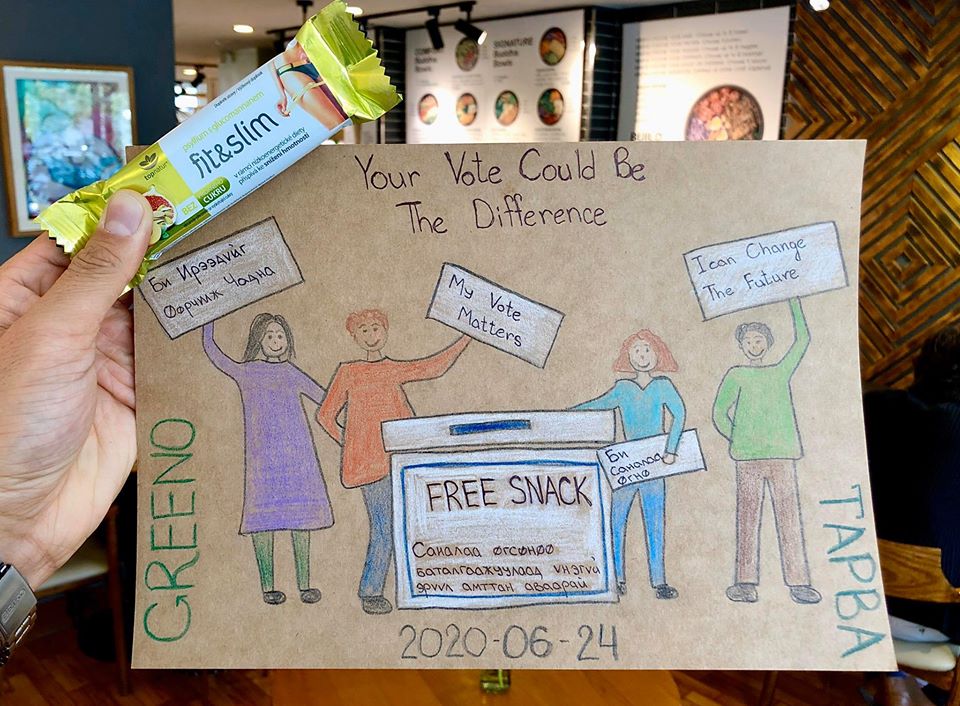 Doplněk stravy / Výživový doplnok
psyllium s glucomannanem
fit&slim
topnatur
BEZ
CUKRU
v rámci nízkoenergetické diety
přispívá ke snížení hmotnosti
SIGNATURE
Buddha
Bowls
Buddha
Bowls
BUILD
Your Vote Could Be
The Difference
Би Ирээдүйг
Өөрчилж Чадна
My Vote
Matters
I can Change
The Future
Би
саналаа
өгнө
FREE SNACK
Саналаа өгсөнөө
баталгаажуулаад үнэгүй
эрүүл амттан аваарай
GREENO
ТАРВА
2020-06-24